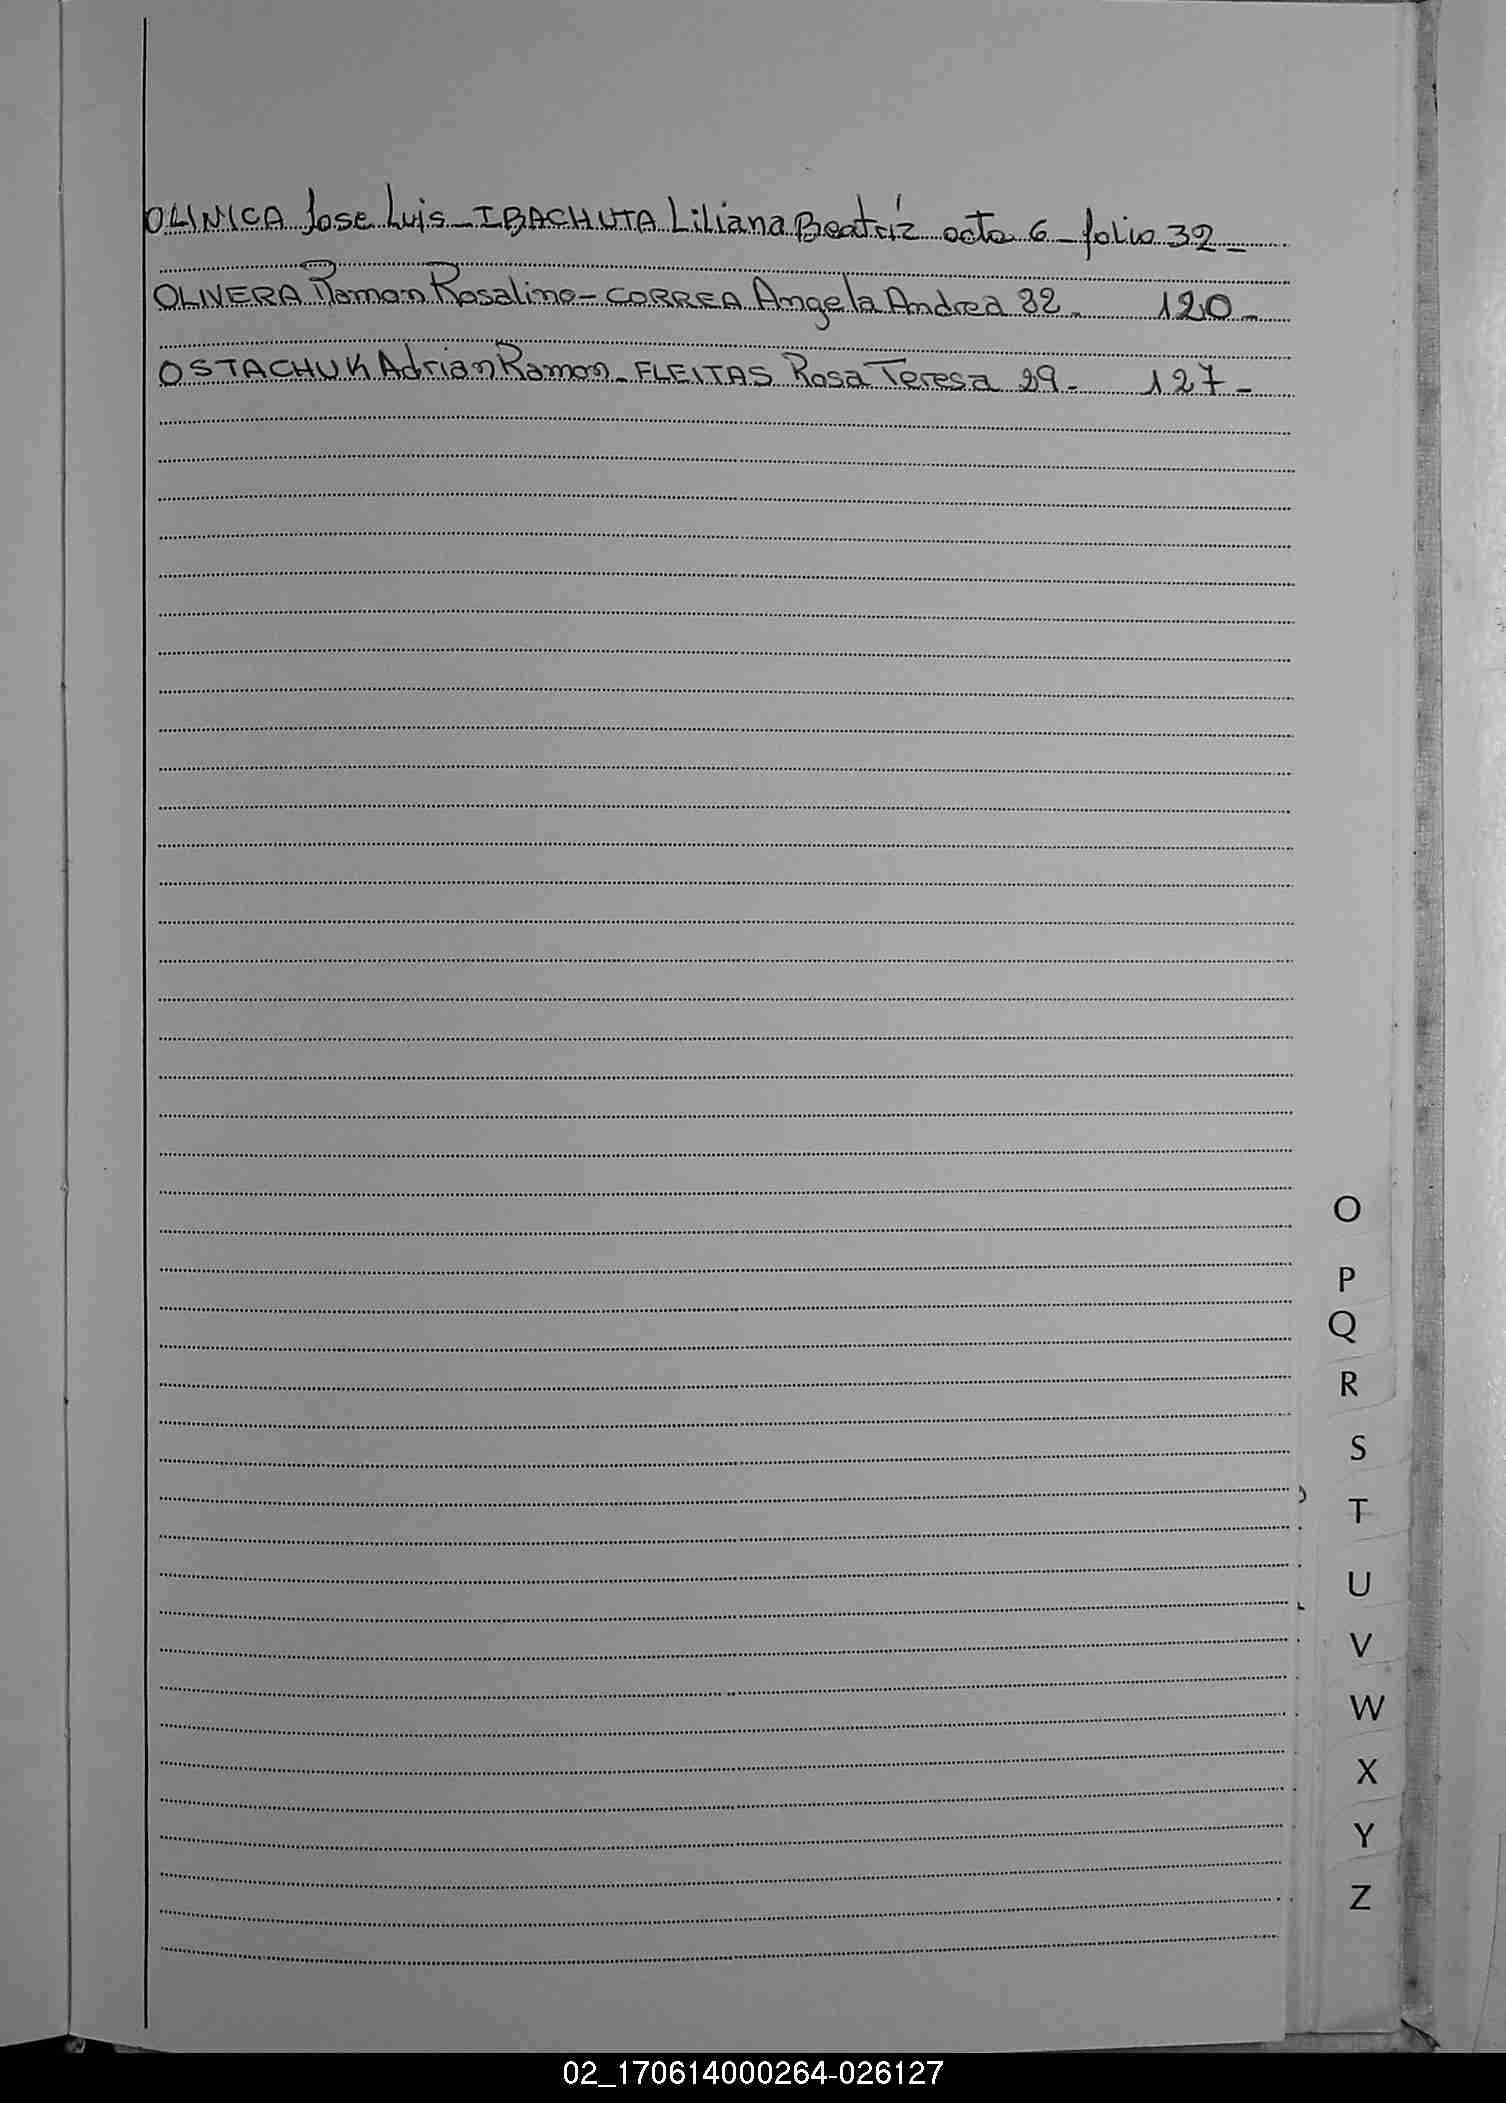 OLINICA Jose Luis - IBACHUTA Liliana Beatríz acta 6 - folio 32 -
OLIVERA Ramon Rosalino - CORREA Angela Andrea 32 - 120 -
OSTACHUK Adrian Ramon - FLEITAS Rosa Teresa 29 - 127 -
O
P
Q
R
S
T
U
V
W
X
Y
Z
02_170614000264-026127